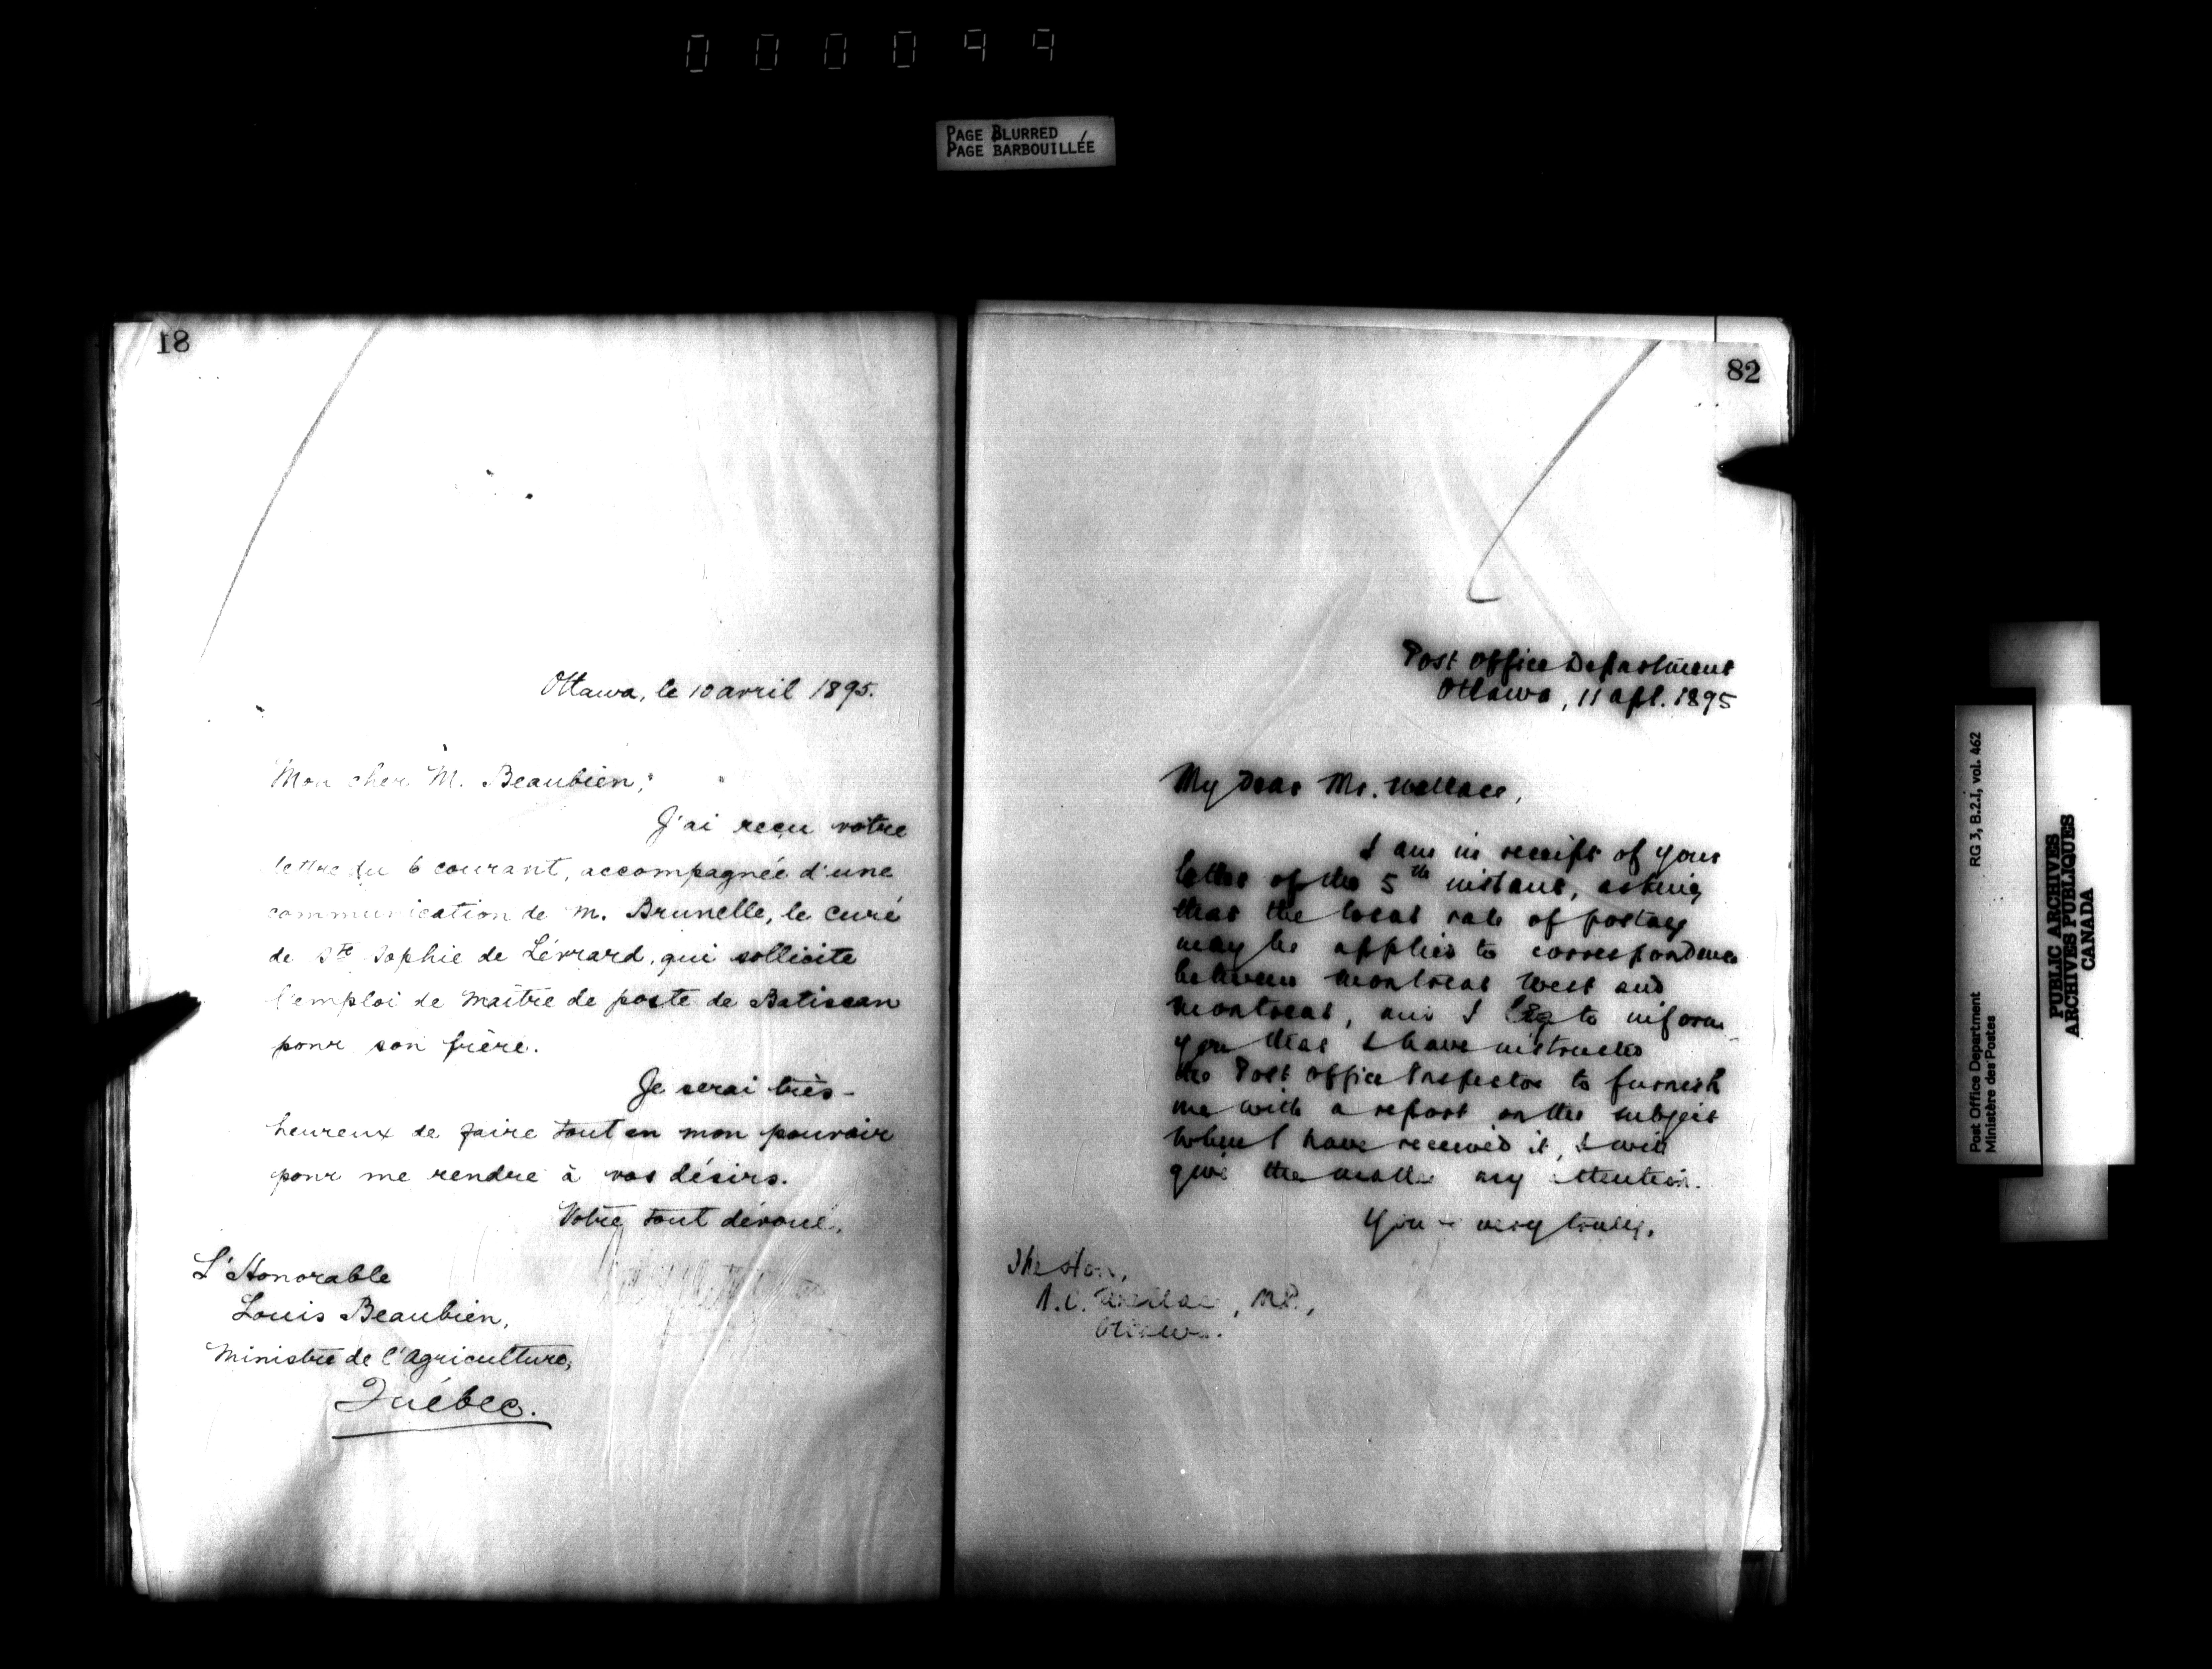 000099
PAGE BLURRED
PAGE BARBOUILLÉE
81
Ottawa, le 10 avril 1895.
Mon cher M. Beaubien,
J'ai reçu votre
lettre du 6 courant, accompagnée d'une
communication de M. Brunelle, le curé
de Ste Sophie de Lévrard, qui sollicite
l'emploi de maître de poste de Batiscan
pour son frère.
Je serai très-
heureux de faire tout en mon pouvoir
pour me rendre à vos désirs.
Votre tout dévoué,
L'Honorable
Louis Beaubien,
Ministre de l'Agriculture,
Québec.
82
Post Office Department
Ottawa, 11 Apl. 1895
My Dear Mr. Wallace,
I am in receipt of your
letter of the 5th instant, asking
that the local rate of postage
may be applied to correspondence
between Montreal West and
Montreal, and I beg to inform
you that I have instructed
the Post Office Inspector to furnish
me with a report on the subject
When I have received it, I will
give the matter my attention.
Yours very truly,
The Hon.
Wallace, M.P.,
Ottawa.
Post Office Department RG 3, B.2.1, vol. 462
Ministère des Postes
PUBLIC ARCHIVES
ARCHIVES PUBLIQUES
CANADA